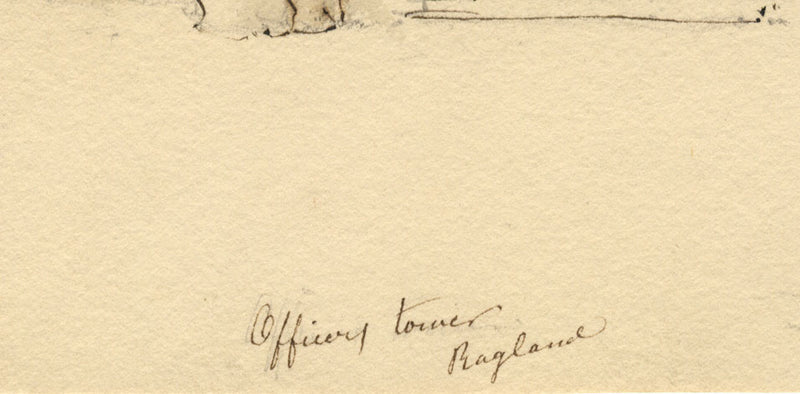 Officers tower
Ragland